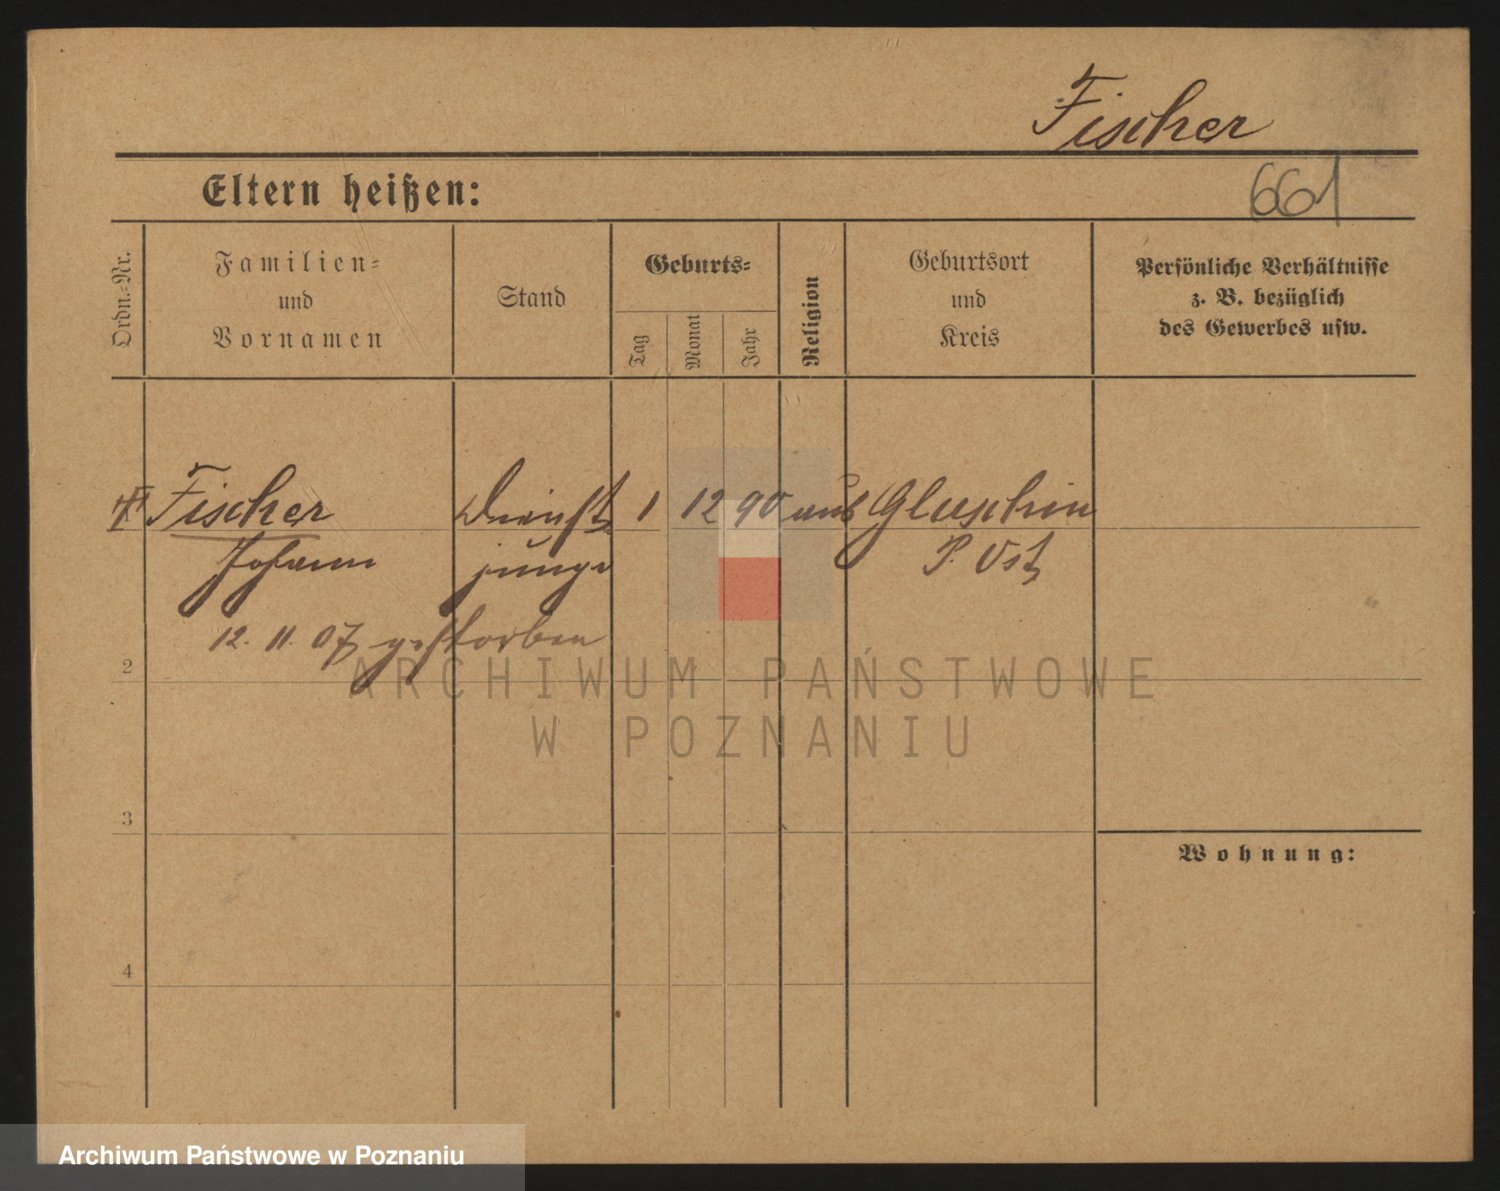 Fischer
Eltern heißen:
661
Ordn.-Nr.
Familien-
und
Vornamen
Stand
Geburts-
Tag
Monat
Jahr
Religion
Geburtsort
und
Kreis
Persönliche Verhältnisse
z. B. bezüglich
des Gewerbes usw.
Fischer Dienst 1 12 90 Gluschin
Johann junge P. Ost
12. 11. 07 gestorben
2
ARCHIWUM PAŃSTWOWE
W POZNANIU
3
Wohnung:
4
Archiwum Państwowe w Poznaniu